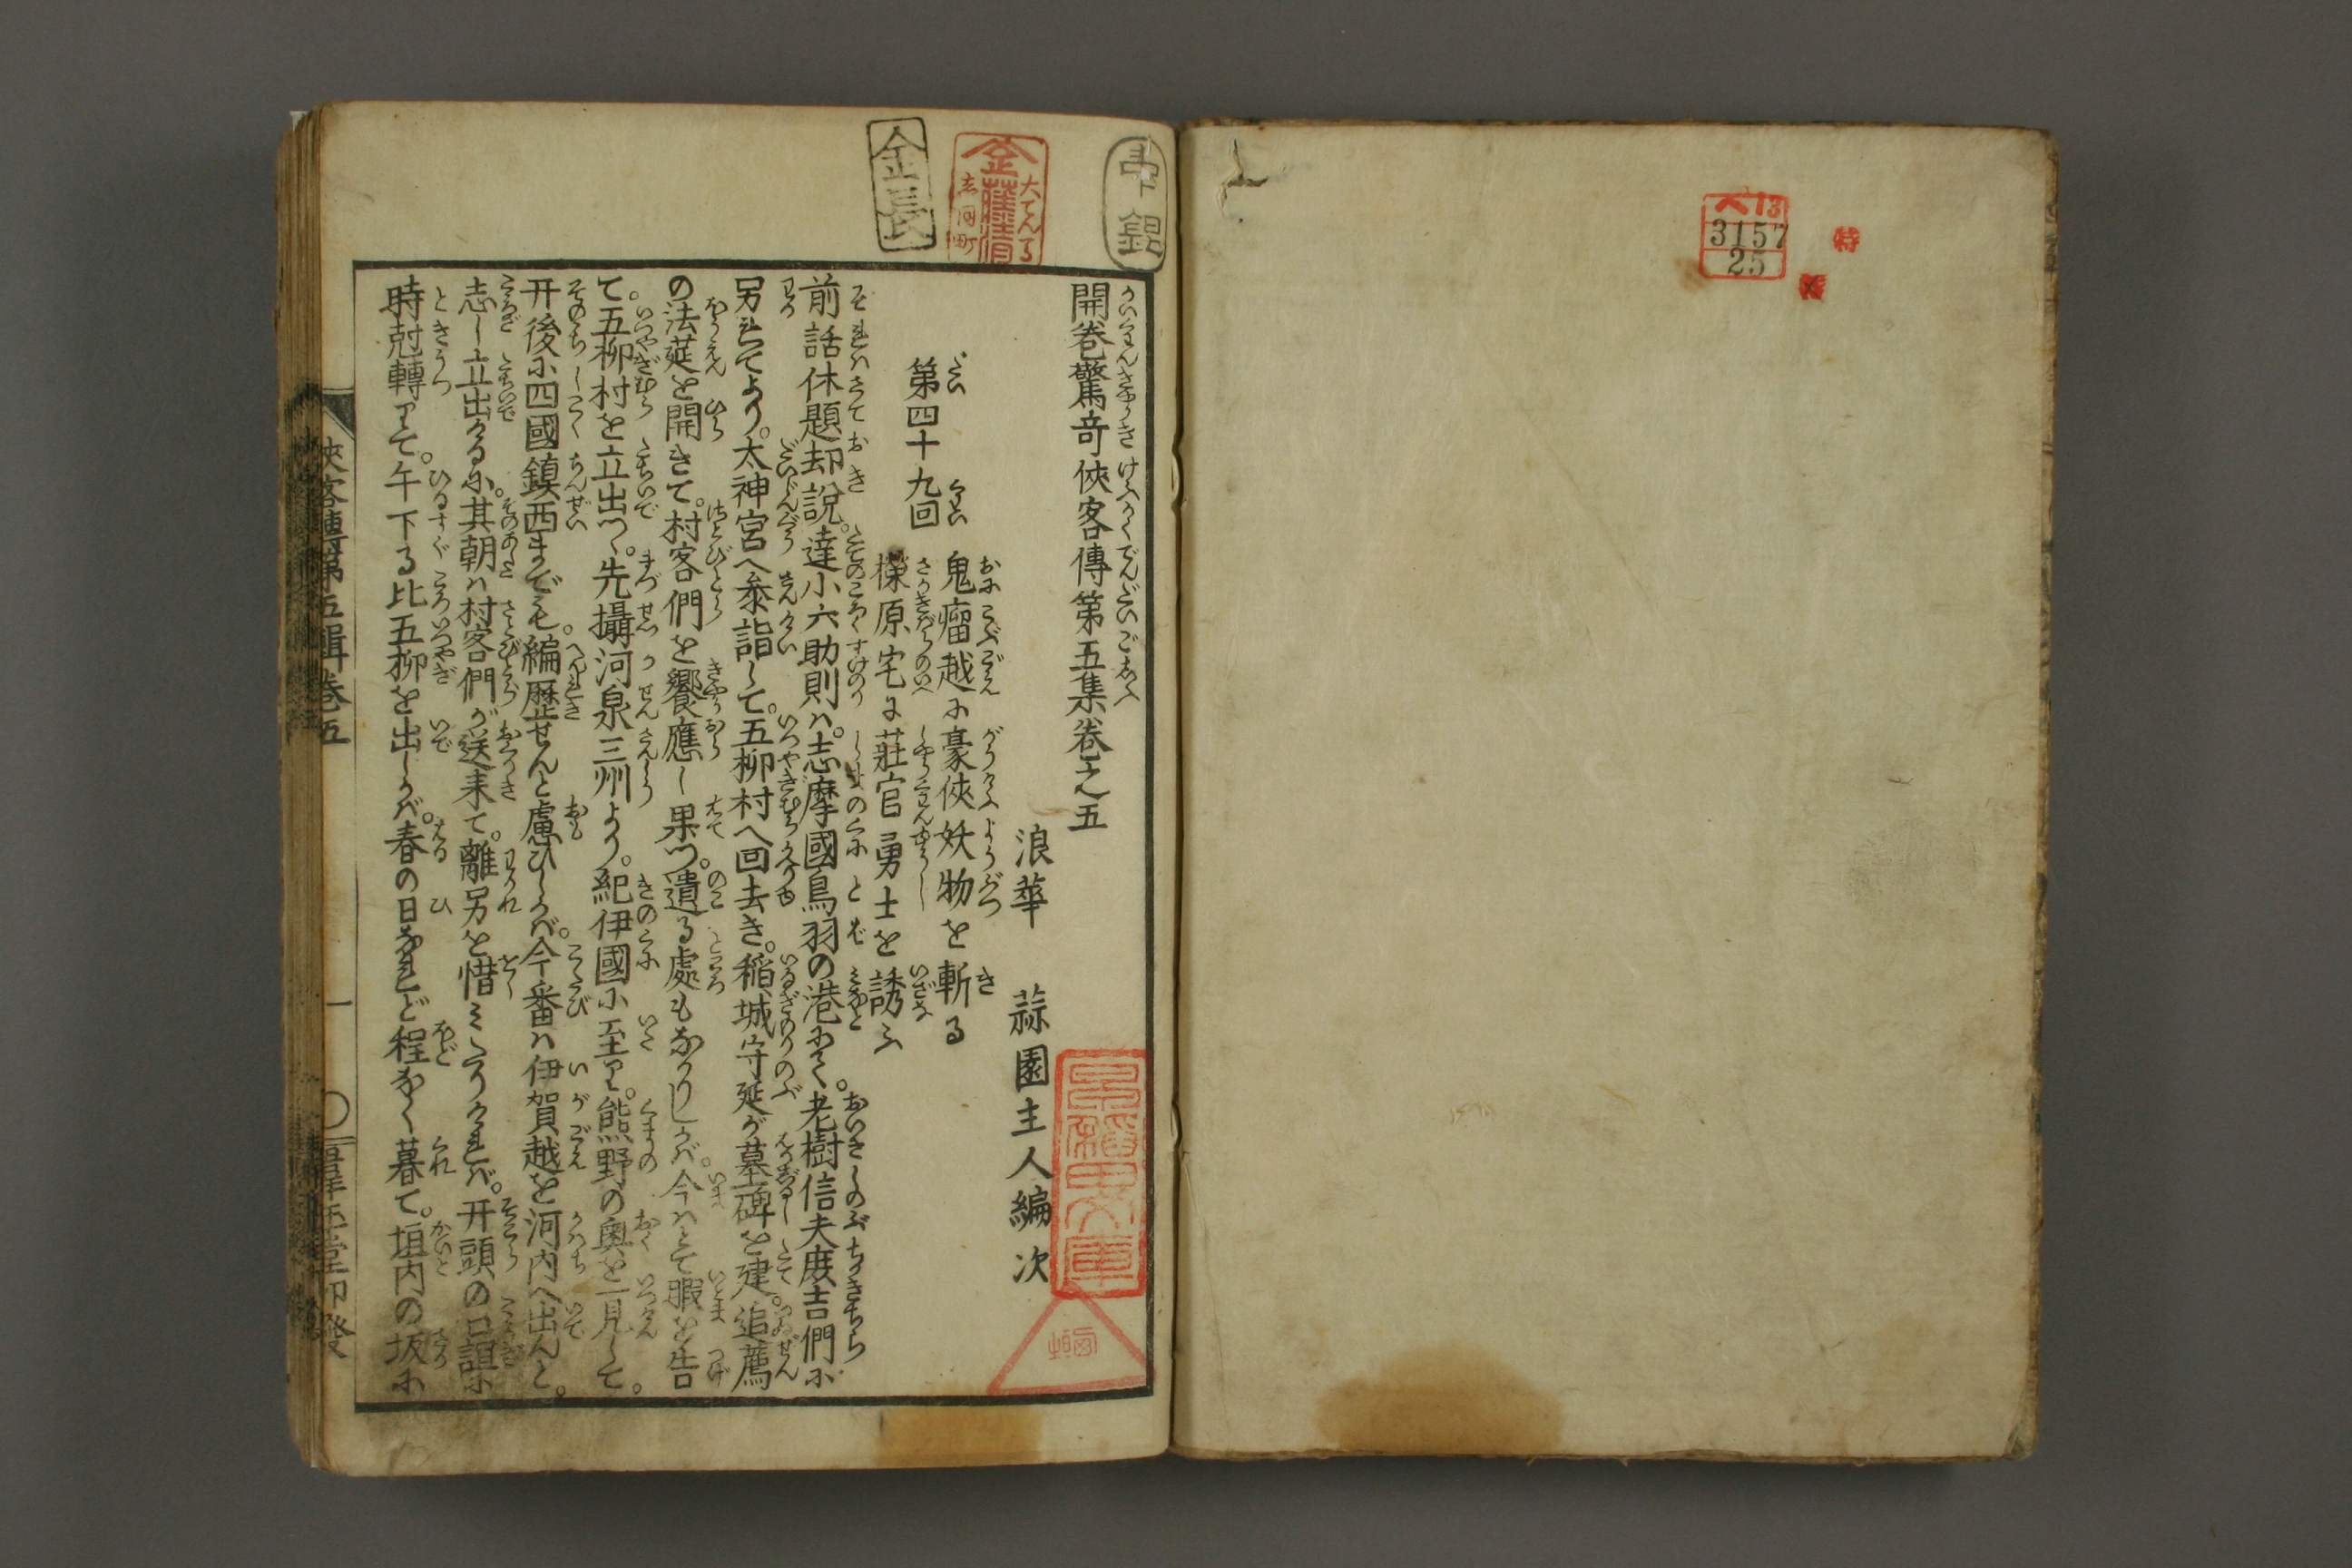 へ13
3157
25
特
開巻驚竒俠客傳第五集卷之五
浪華 蒜園主人編次
第四十九回
鬼瘤越に豪俠妖物を斬る
榊原宅に莊官勇士を誘ふ
前話休題却說。達小六助則ハ。志摩國鳥羽の港にて。老樹信夫度吉們に
別れてより。太神宮へ参詣して。五柳村へ回去き。稲城守延が墓碑を建。追薦
の法莚を開きて。村客們を饗應し果つ。遺る處もなかりしかバ。今ハとて暇を告
て。五柳村を立出つゝ。先攝河泉三州より。紀伊國に至りて。熊野の奥を一見して。
开後に四國鎮西までも。編歴せんと慮ひしかバ。今番ハ伊賀越を河内へ出んと。
志し立出けるに。其朝ハ村客們が送来て。離別を惜みけれバ。开頭の口誼に
時尅轉りて。午下る比五柳を出しかバ。春の日なれど程なく暮て。垣内の坂に
俠客傳第五輯卷五
一
金長
大てんま